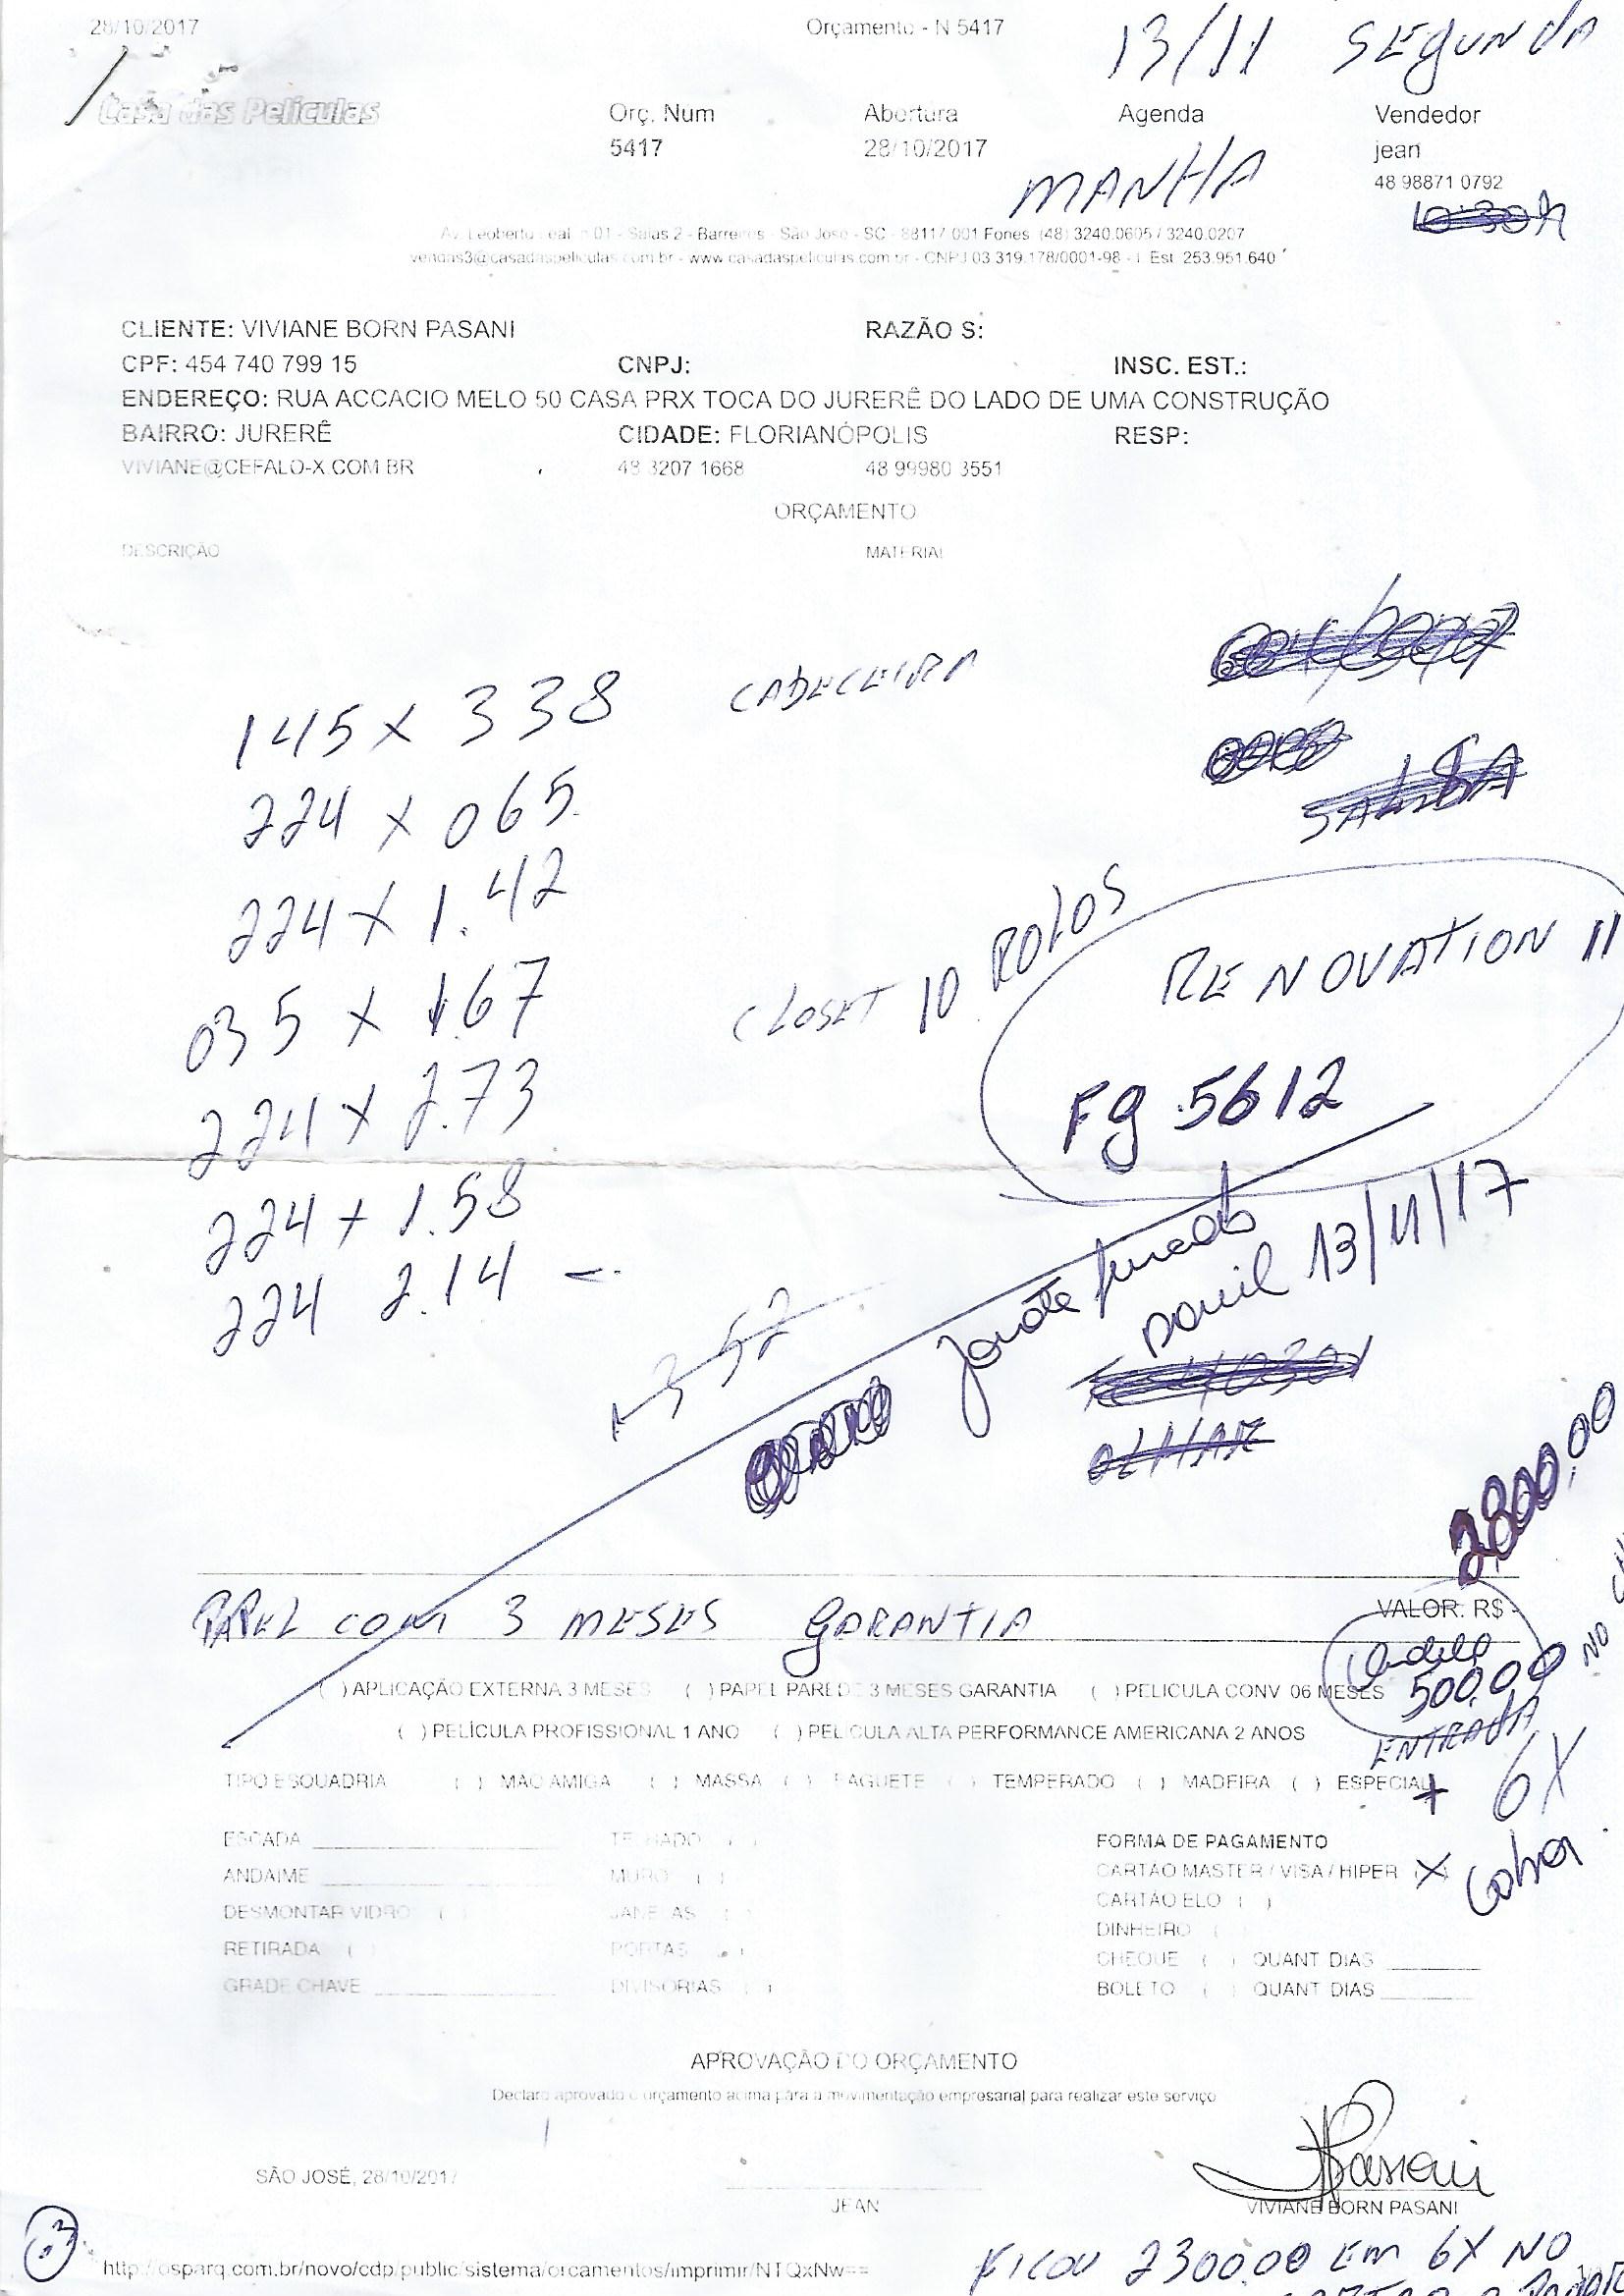 28/10/2017 Orçamento - N 5417
13/11 SEGUNDA
Casa das Películas
Orç. Num Abertura Agenda Vendedor
5417 28/10/2017 jean
MANHA
48 98871 0792
10:30h
Av. Leoberto Leal 01 - Salas 2 - Barreiros - São José - SC - 88117 001 Fones (48) 3240.0605 / 3240.0207
vendas3@casadaspeliculas.com.br - www.casadaspeliculas.com.br - CNPJ 03.319.178/0001-98 - I. Est. 253.951.640
CLIENTE: VIVIANE BORN PASANI RAZÃO S:
CPF: 454 740 799 15 CNPJ: INSC. EST.:
ENDEREÇO: RUA ACCACIO MELO 50 CASA PRX TOCA DO JURERÊ DO LADO DE UMA CONSTRUÇÃO
BAIRRO: JURERÊ CIDADE: FLORIANÓPOLIS RESP:
VIVIANE@CEFALO-X.COM.BR 48 3207 1668 48 99980 3551
ORÇAMENTO
DESCRIÇÃO MATERIAL
145 x 338 CABECEIRA
224 x 065
224 x 1.42
035 x 1.67 CLOSET 10 ROLOS
RENOVATION II
224 x 2.73
Fg 5612
224 + 1.58
224 2.14 -
13/11/17
352
2800,00
PAPEL COM 3 MESES GARANTIA
VALOR: R$
500,00 NO
ENTRADA
( ) APLICAÇÃO EXTERNA 3 MESES ( ) PAPEL PAREDE 3 MESES GARANTIA ( ) PELICULA CONV 06 MESES
( ) PELÍCULA PROFISSIONAL 1 ANO ( ) PELICULA ALTA PERFORMANCE AMERICANA 2 ANOS
TIPO ESQUADRIA ( ) MAO AMIGA ( ) MASSA ( ) BAGUETE ( ) TEMPERADO ( ) MADEIRA ( ) ESPECIAL
+ 6X
ESCADA TELHADO ( ) FORMA DE PAGAMENTO
ANDAIME MURO ( ) CARTÃO MASTER / VISA / HIPER (X)
DESMONTAR VIDRO ( ) JANELAS ( ) CARTÃO ELO ( )
RETIRADA ( ) PORTAS ( ) DINHEIRO ( )
CHEQUE ( ) QUANT DIAS
GRADE CHAVE DIVISORIAS ( ) BOLETO ( ) QUANT DIAS
APROVAÇÃO DO ORÇAMENTO
Declaro aprovado o orçamento acima para a movimentação empresarial para realizar este serviço
SÃO JOSÉ, 28/10/2017
JEAN
Pasani
VIVIANE BORN PASANI
http://osparq.com.br/novo/cdp/public/sistema/orcamentos/imprimir/NTQxNw==
FICOU 2300.00 EM 6X NO